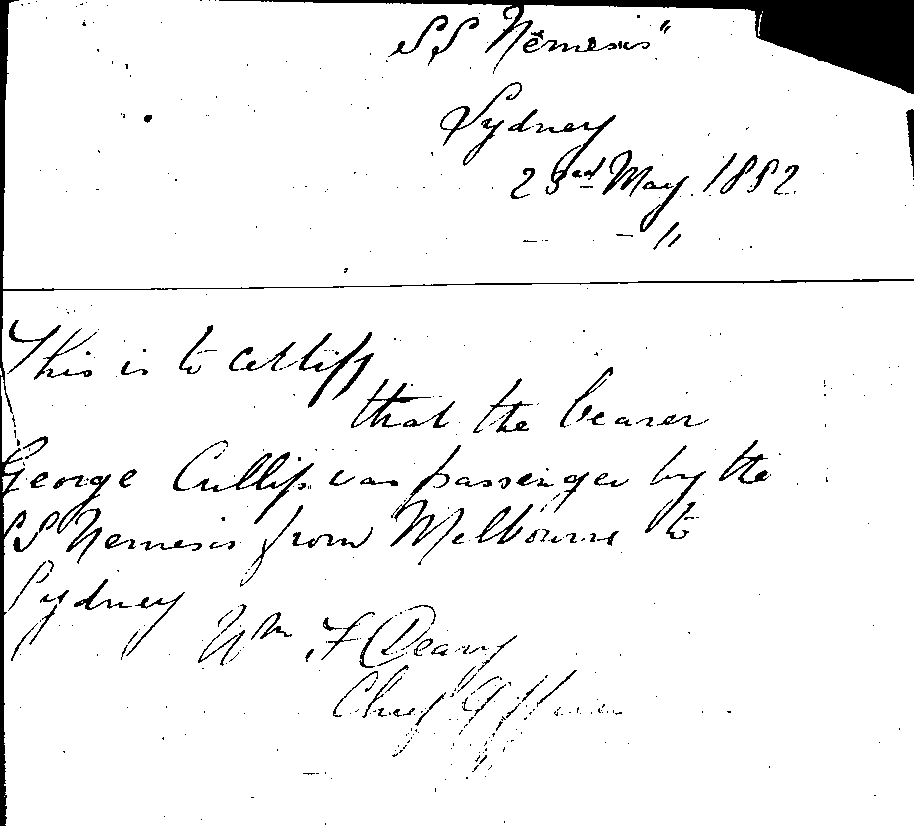 SS "Nemesis"
Sydney
23rd May 1882
This is to certify
that the bearer
George Cullip was passenger by the
SS Nemesis from Melbourne to
Sydney
Wm F Deary
Chief Officer